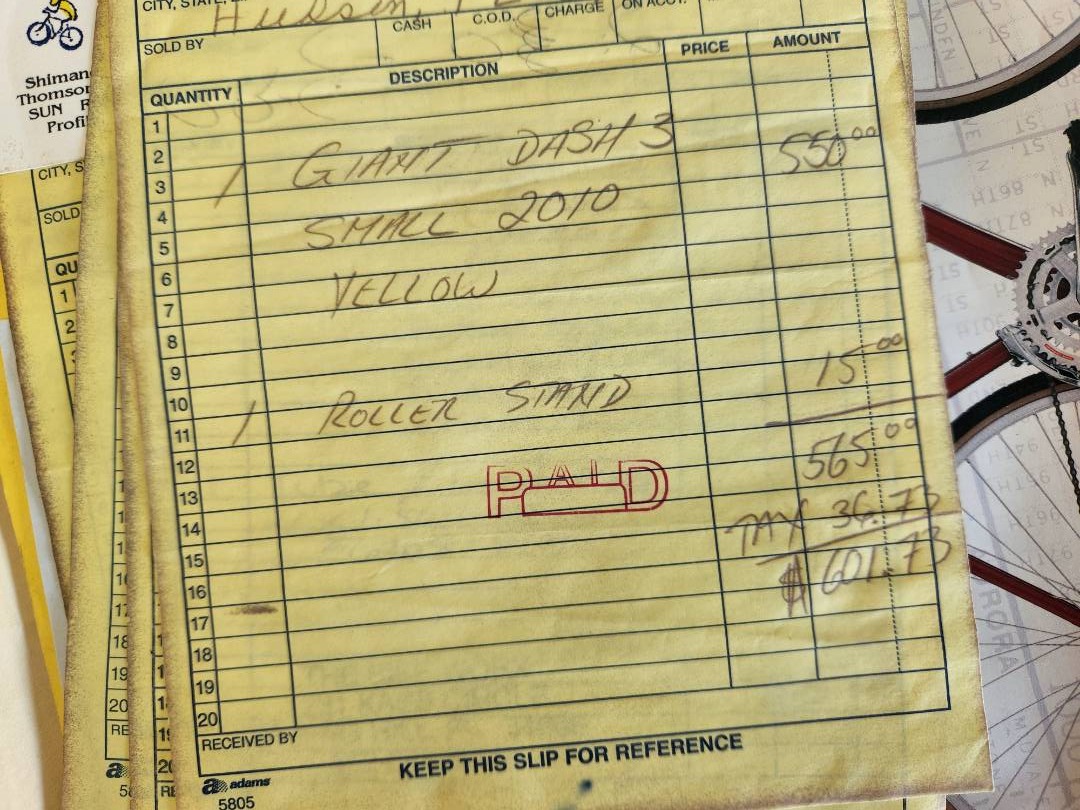 CITY, STATE, ZIP
Hudson, FL
SOLD BY
CASH
C.O.D.
CHARGE
ON ACCT.
QUANTITY
DESCRIPTION
PRICE
AMOUNT
1
2
3 1 GIANT DASH 3 550.00
4
5 SMALL 2010
6
7 YELLOW
8
9
10 15.00
11 1 ROLLER STAND
12 565.00
13 PAID
14 TAX 36.73
15
16 $601.73
17
18
19
20
RECEIVED BY
KEEP THIS SLIP FOR REFERENCE
adams
5805
Shiman
Thomson
SUN R
Profil
CITY, S
SOLD
QU
1
2
17
18
19
20
RE
N 86TH
N 87TH